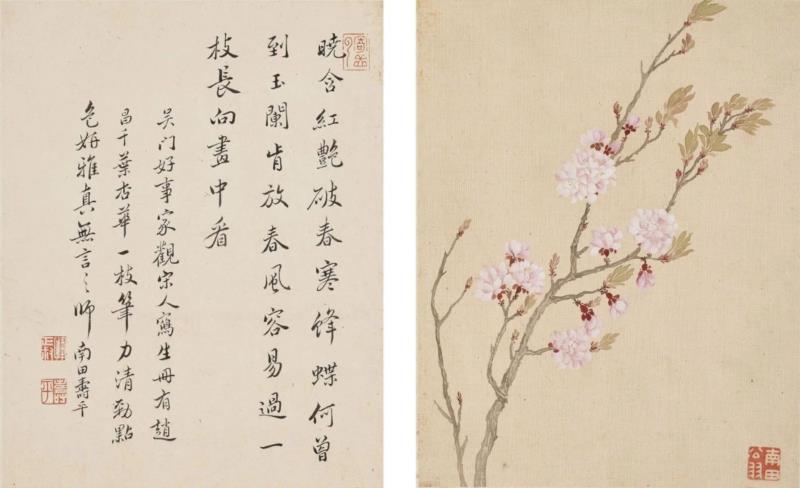 曉含紅艷破春寒蜂蝶何曾
到玉闌肯放春風容易過一
枝長向畫中看
吴门好事家觀宋人寫生冊有趙
昌千葉杏華一枝筆力清勁點
色妍雅真無言之師 南田壽平
壽平
南田
公羽